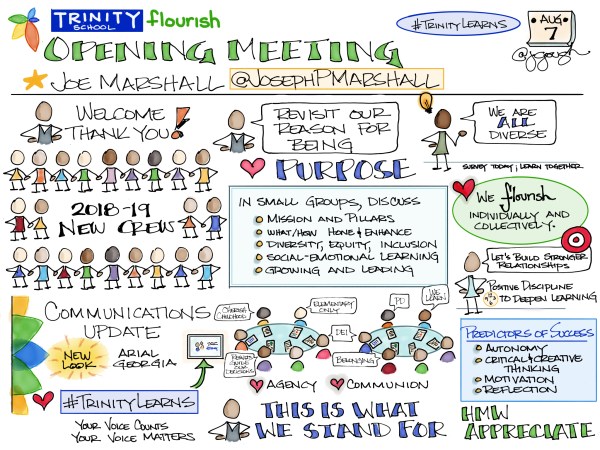 TRINITY
SCHOOL
flourish
#TRINITYLEARNS
AUG
7
@jgough
OPENING MEETING
JOE MARSHALL @JOSEPHPMARSHALL
WELCOME
THANK YOU!
REVISIT OUR
REASON FOR
BEING
PURPOSE
WE ARE
ALL
DIVERSE
SURVEY TODAY; LEARN TOGETHER
2018-19
NEW CREW
IN SMALL GROUPS, DISCUSS
MISSION AND PILLARS
WHAT/HOW HONE & ENHANCE
DIVERSITY, EQUITY, INCLUSION
SOCIAL-EMOTIONAL LEARNING
GROWING AND LEADING
WE flourish
INDIVIDUALLY AND
COLLECTIVELY.
LET'S BUILD STRONGER
RELATIONSHIPS
POSITIVE DISCIPLINE
TO DEEPEN LEARNING
COMMUNICATIONS
UPDATE
NEW
LOOK
ARIAL
GEORGIA
#TRINITYLEARNS
YOUR VOICE COUNTS
YOUR VOICE MATTERS
CHERISH
CHILDHOOD
ELEMENTARY
ONLY
PD
WE
LEARN
DEI
BELONGING
AGENCY
COMMUNION
THIS IS WHAT
WE STAND FOR
PREDICTORS OF SUCCESS
AUTONOMY
CRITICAL & CREATIVE
THINKING
MOTIVATION
REFLECTION
HMW
APPRECIATE